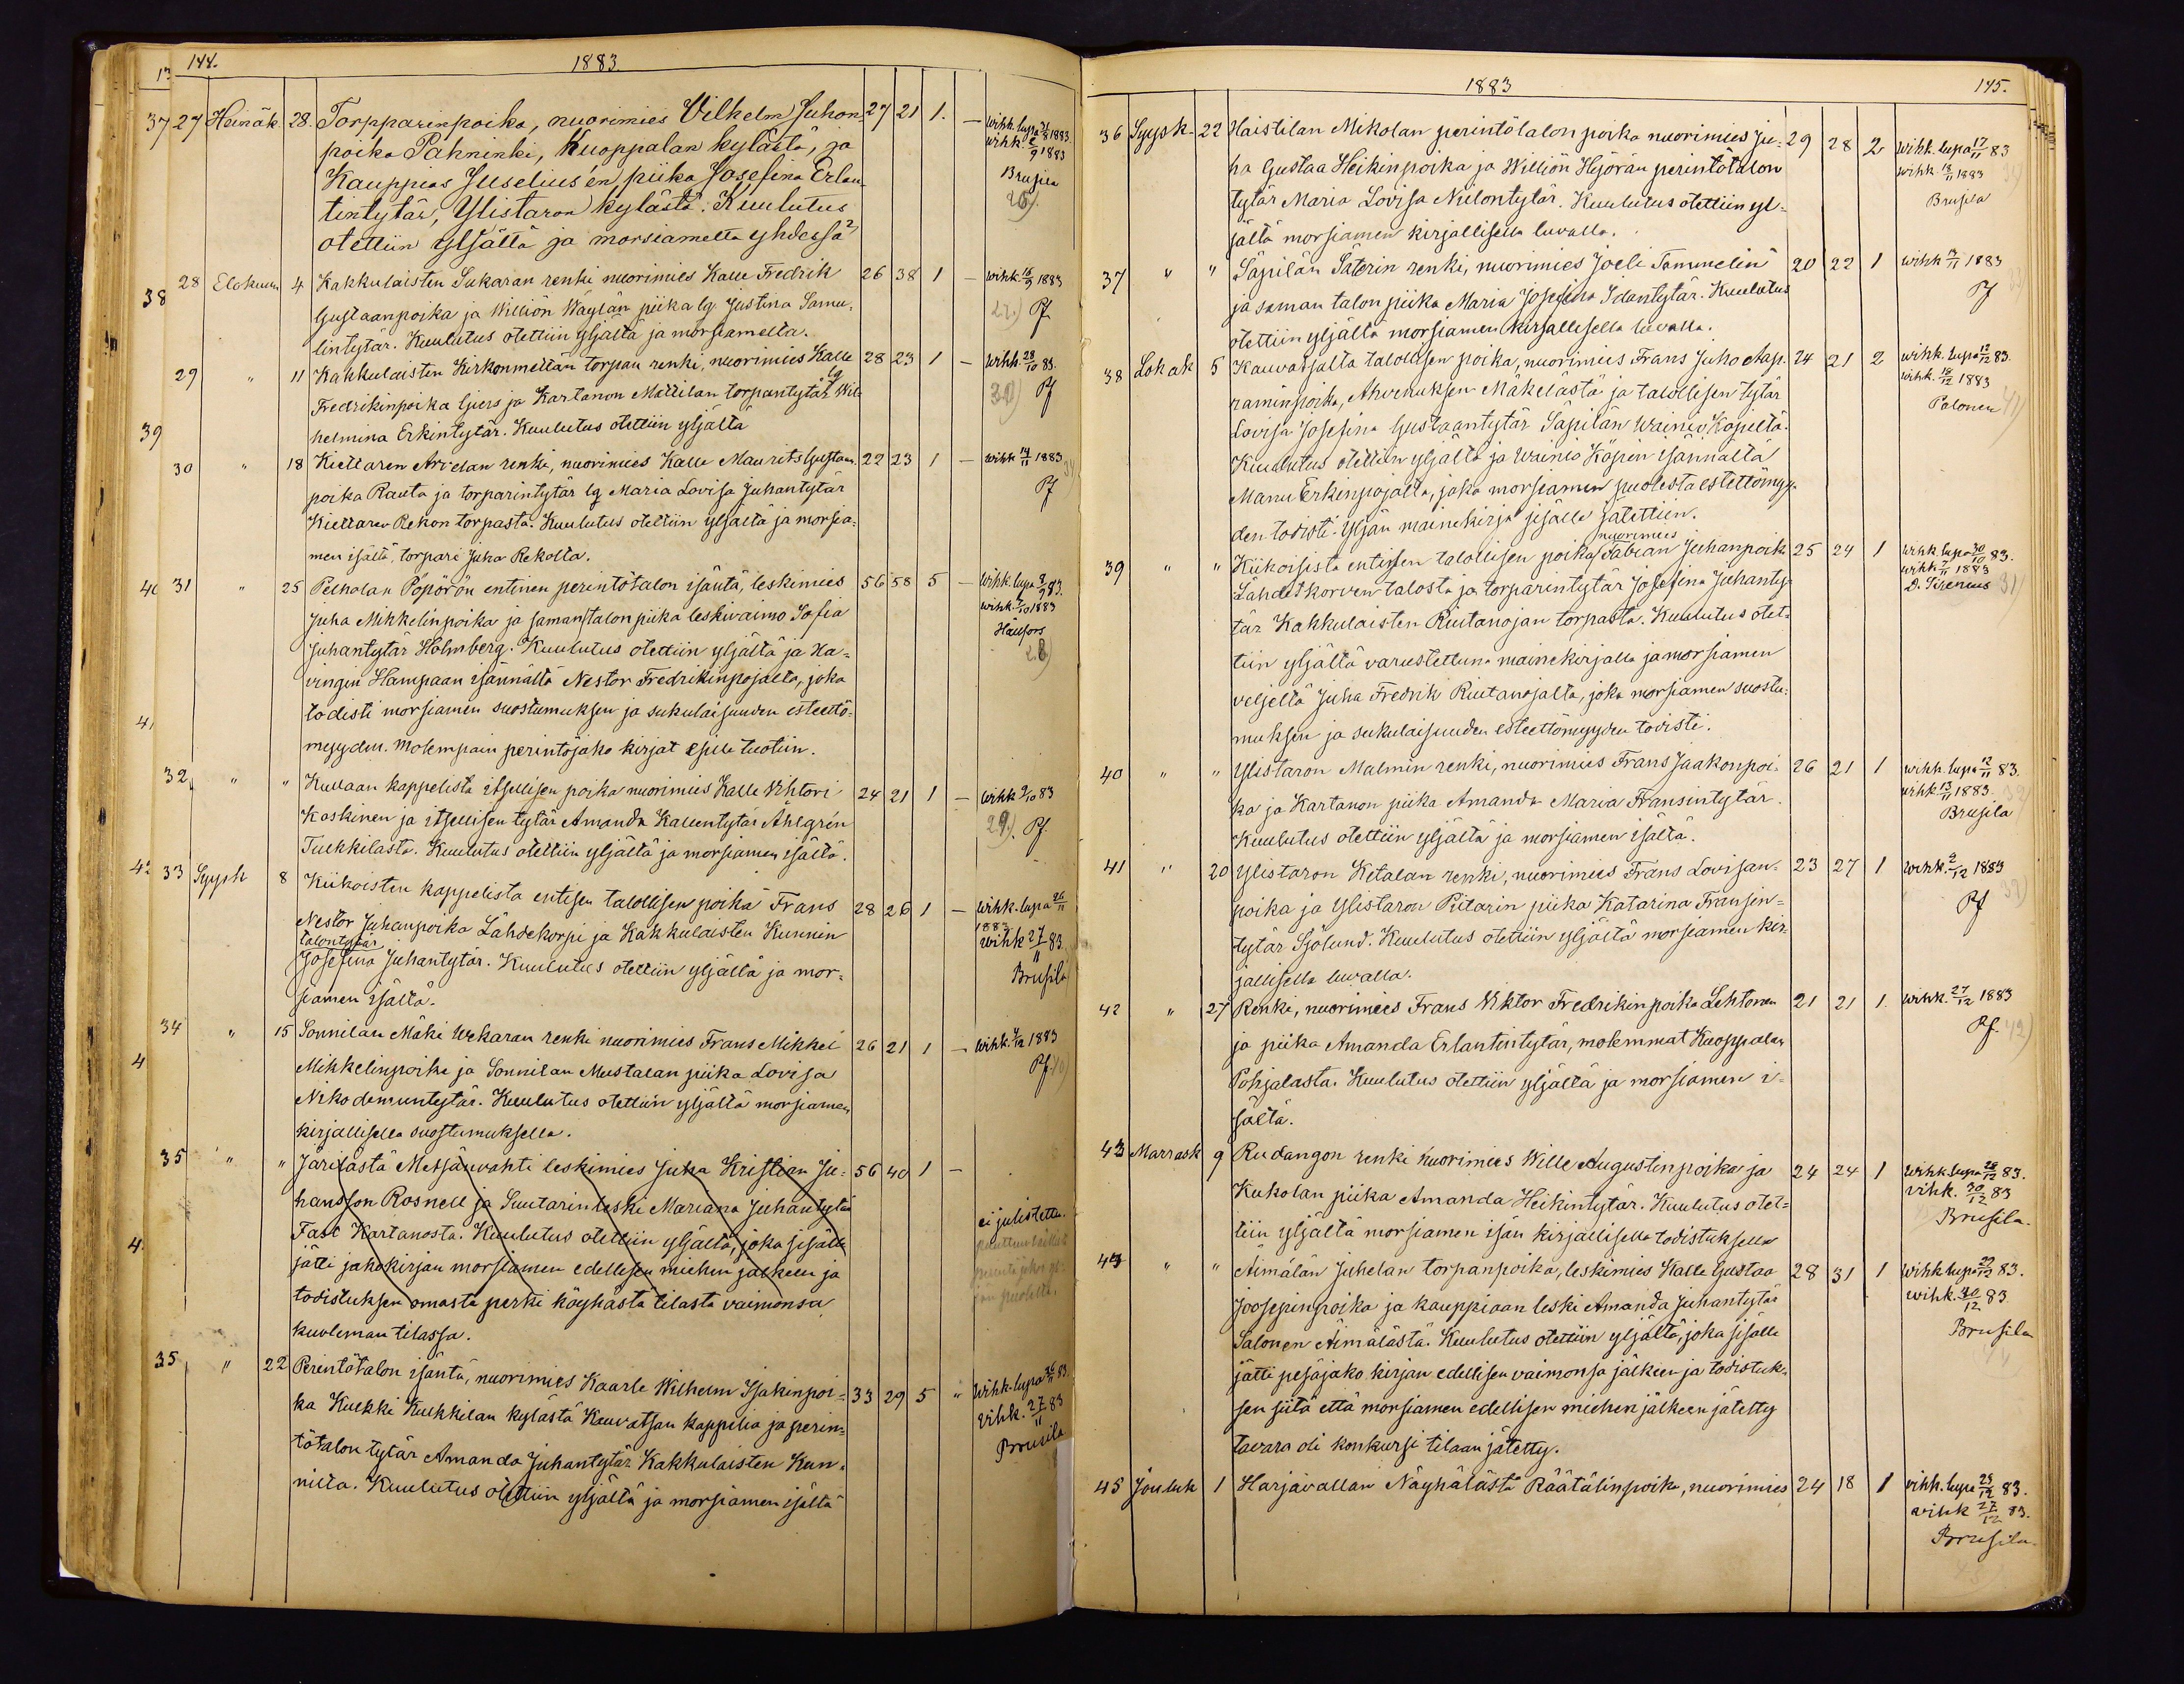 144.
1883
27 Heinäk. 28. Torpparinpoika, nuorimies Vilhelm Juhon- 27 21 1. — wihk. lupa 31/8 1883
poika Pahninki, Kuoppalan kylästä, ja wihk. 2/9 1883
Kauppias Juselius'en piika Josefina Erlan- Brusila
tintytär, Ylistaron kylästä. Kuulutus 26).
otettiin yljältä ja morsiamelta yhdessä
28 Elokuun 4 Kakkulaisten Sukaran renki nuorimies Kalle Fredrik 26 38 1 — wihk. 16/9 1883
Gustaanpoika ja Williön Wäylän piika lg Justina Samu- 27.) Pf
lintytär. Kuulutus otettiin yljältä ja morsiamelta.
29 " 11 Kakkulaisten Kirkonmettän torpan renki, nuorimies Kalle 28 23 1 — wihk. 28/10 83.
Fredrikinpoika Giers ja Kartanon Mattilan torpantytär lg Wil- 30) Pf
helmina Erkintytär. Kuulutus otettiin yljältä
30 " 18 Kiettaren Arvelan renki, nuorimies Kalle Maurits Gustaan- 22 23 1 — wihk 14/11 1883
poika Rauta ja torparintytär lg Maria Lovisa Juhantytär Pf
Kiettaren Rekon torpasta. Kuulutus otettiin yljältä ja morsia-
men isältä, torpari Juha Rekolta.
31 " 25 Pelholan Pöpörön entinen perintötalon isäntä, leskimies 56 58 5 — wihk. lupa 8/9 83.
Juha Mikkelinpoika ja saman talon piika leskivaimo Sofia wihk. 7/10 1883
Juhantytär Holmberg. Kuulutus otettiin yljältä ja Ha- Hällfors
vingin Hampaan isännältä Nestor Fredrikinpojalta, joka 28)
todisti morsiamen suostumuksen ja sukulaisuuden esteettö-
myyden. Molempain perintöjako kirjat esille tuotiin.
32 " " Kullaan kappelista itsellisen poika nuorimies Kalle Vihtori 24 21 1 — wihk 9/10 83
Koskinen ja itsellisen tytär Amanda Kallentytär Åhlgrén 29). Pf.
Tulkkilasta. Kuulutus otettiin yljältä ja morsiamen isältä.
33 Syysk 8 Kiikoisten kappelista entisen talollisen poika Frans 28 26 1 — wihk. lupa 26/11 1883
Nestor Juhanpoika Lähdekorpi ja Kakkulaisten Kunnin wihk 27/11 83.
talontytär Josefina Juhantytär. Kuulutus otettiin yljältä ja mor- Brusila
siamen isältä.
34 " 15 Sonnilan Mäki Wekaran renki nuorimies Frans Mikkel 26 21 1 — wihk. 4/12 1883
Mikkelinpoika ja Sonnilan Mustalan piika Lovisa Pf. 40)
Nikodemuntytär. Kuulutus otettiin yljältä morsiamen
kirjallisella suostumuksella.
35 " " Järilästä Metsänvahti leskimies Juha Kristian Ju- 56 40 1 —
hansson Rosnell ja Suutarin leski Mariana Juhantytär ei julistettu.
Fast Kartanosta. Kuulutus otettiin yljältä, joka sisälle
jätti jakokirjan morsiamen edellisen miehen jälkeen ja
todistuksen omasta perki köyhästä tilasta vaimonsa
kuoleman tilassa.
35 " 22 Perintötalon isäntä, nuorimies Kaarle Wilhelm Isakinpoi- 33 29 5 " wihk. lupa 26/11 83.
ka Kulkki Kulkkilan kylästä Kauvatsan kappelia ja perin- vihk. 27/11 83
tötalon tytär Amanda Juhantytär Kakkulaisten Kun- Brusila
nilta. Kuulutus otettiin yljältä ja morsiamen isältä
1883
145.
36 Syysk. 22 Haistilan Mikolan perintötalon poika nuorimies Ju- 29 28 2 wihk. lupa 17/11 83
ha Gustaa Heikinpoika ja Williön Hyörän perintötalon wihk. 18/11 1883
tytär Maria Lovisa Niilontytär. Kuulutus otettiin yl- Brusila
jältä morsiamen kirjallisella luvalla.
37 " " Säpilän Säterin renki, nuorimies Joeli Tammelin 20 22 1 wihk /11 1883
ja saman talon piika Maria Josefina Idantytär. Kuulutus Pf
otettiin yljältä morsiamen kirjallisella luvalla.
38 Lokak 5 Kauvatsalta talollisen poika, nuorimies Frans Juho Aap- 24 21 2 wihk. lupa 12/12 83.
raminpoika, Ahvenuksen Mäkelästä ja talollisen tytär wihk. 18/12 1883
Lovisa Josefina Gustaantytär Säpilän Wainio Käpiltä. Polonen 41)
Kuulutus otettiin yljältä ja Wainio Käpin isännältä
Manu Erkinpojalta, joka morsiamen puolesta estettömyy-
den todisti. Yljän mainekirja sisälle jätettiin.
39 " " Kiikoisista entisen talollisen poika nuorimies Fabian Juhanpoik 25 24 1 wihk. lupa 30/10 83.
Lähdeskorven talosta ja torparintytär Josefina Juhanty- wihk 7/11 1883
tär Kakkulaisten Riutanojan torpasta. Kuulutus otet- D. Sirenius 31)
tiin yljältä varustettuna mainekirjalla ja morsiamen
veljeltä Juha Fredrik Riutanojalta, joka morsiamen suostu-
muksen ja sukulaisuuden esteettömyyden todisti.
40 " " Ylistaron Malmin renki, nuorimies Frans Jaakonpoi- 26 21 1 wihk. lupa 12/11 83.
ka ja Kartanon piika Amanda Maria Fransintytär. wihk 13/11 1883.
Kuulutus otettiin yljältä ja morsiamen isältä. Brusila
41 " 20 Ylistaron Ketalan renki, nuorimies Frans Lovisan- 23 27 1 wihk. 2/12 1883
poika ja Ylistaron Piitarin piika Katarina Fransin- Pf
tytär Sjölund. Kuulutus otettiin yljältä morsiamen kir-
jallisella luvalla.
42 " 27 Renki, nuorimies Frans Viktor Fredrikinpoika Lehtonen 21 21 1. wihk. 27/12 1883
ja piika Amanda Erlantintytär, molemmat Kuoppalan Pf. 42)
Pohjalasta. Kuulutus otettiin yljältä ja morsiamen i-
sältä.
43 Marrask 9 Rudangon renki nuorimies Wille Augustinpoika ja 24 24 1 wihk. lupa 28/12 83.
Kukolan piika Amanda Heikintytär. Kuulutus otet- vihk. 30/12 83
tiin yljältä morsiamen isän kirjallisella todistuksella Brusila.
44 " " Äimälän Juhelan torpanpoika, leskimies Kalle Gustaa 28 31 1 wihk lupa 29/12 83.
Joosepinpoika ja kauppiaan leski Amanda Juhantytär wihk. 30/12 83
Salonen Äimälästä. Kuulutus otettiin yljältä, joka sisälle Brusila
jätti pesäjako kirjan edellisen vaimonsa jälkeen ja todistuk-
sen siitä että morsiamen edellisen miehen jälkeen jätetty
tavara oli konkursi tilaan jätetty.
45 Jouluk 1 Harjavallan Näyhälästä Räätälinpoika, nuorimies 24 18 1 vihk. lupa 23/12 83.
wihk 27/12 83.
Brusila.